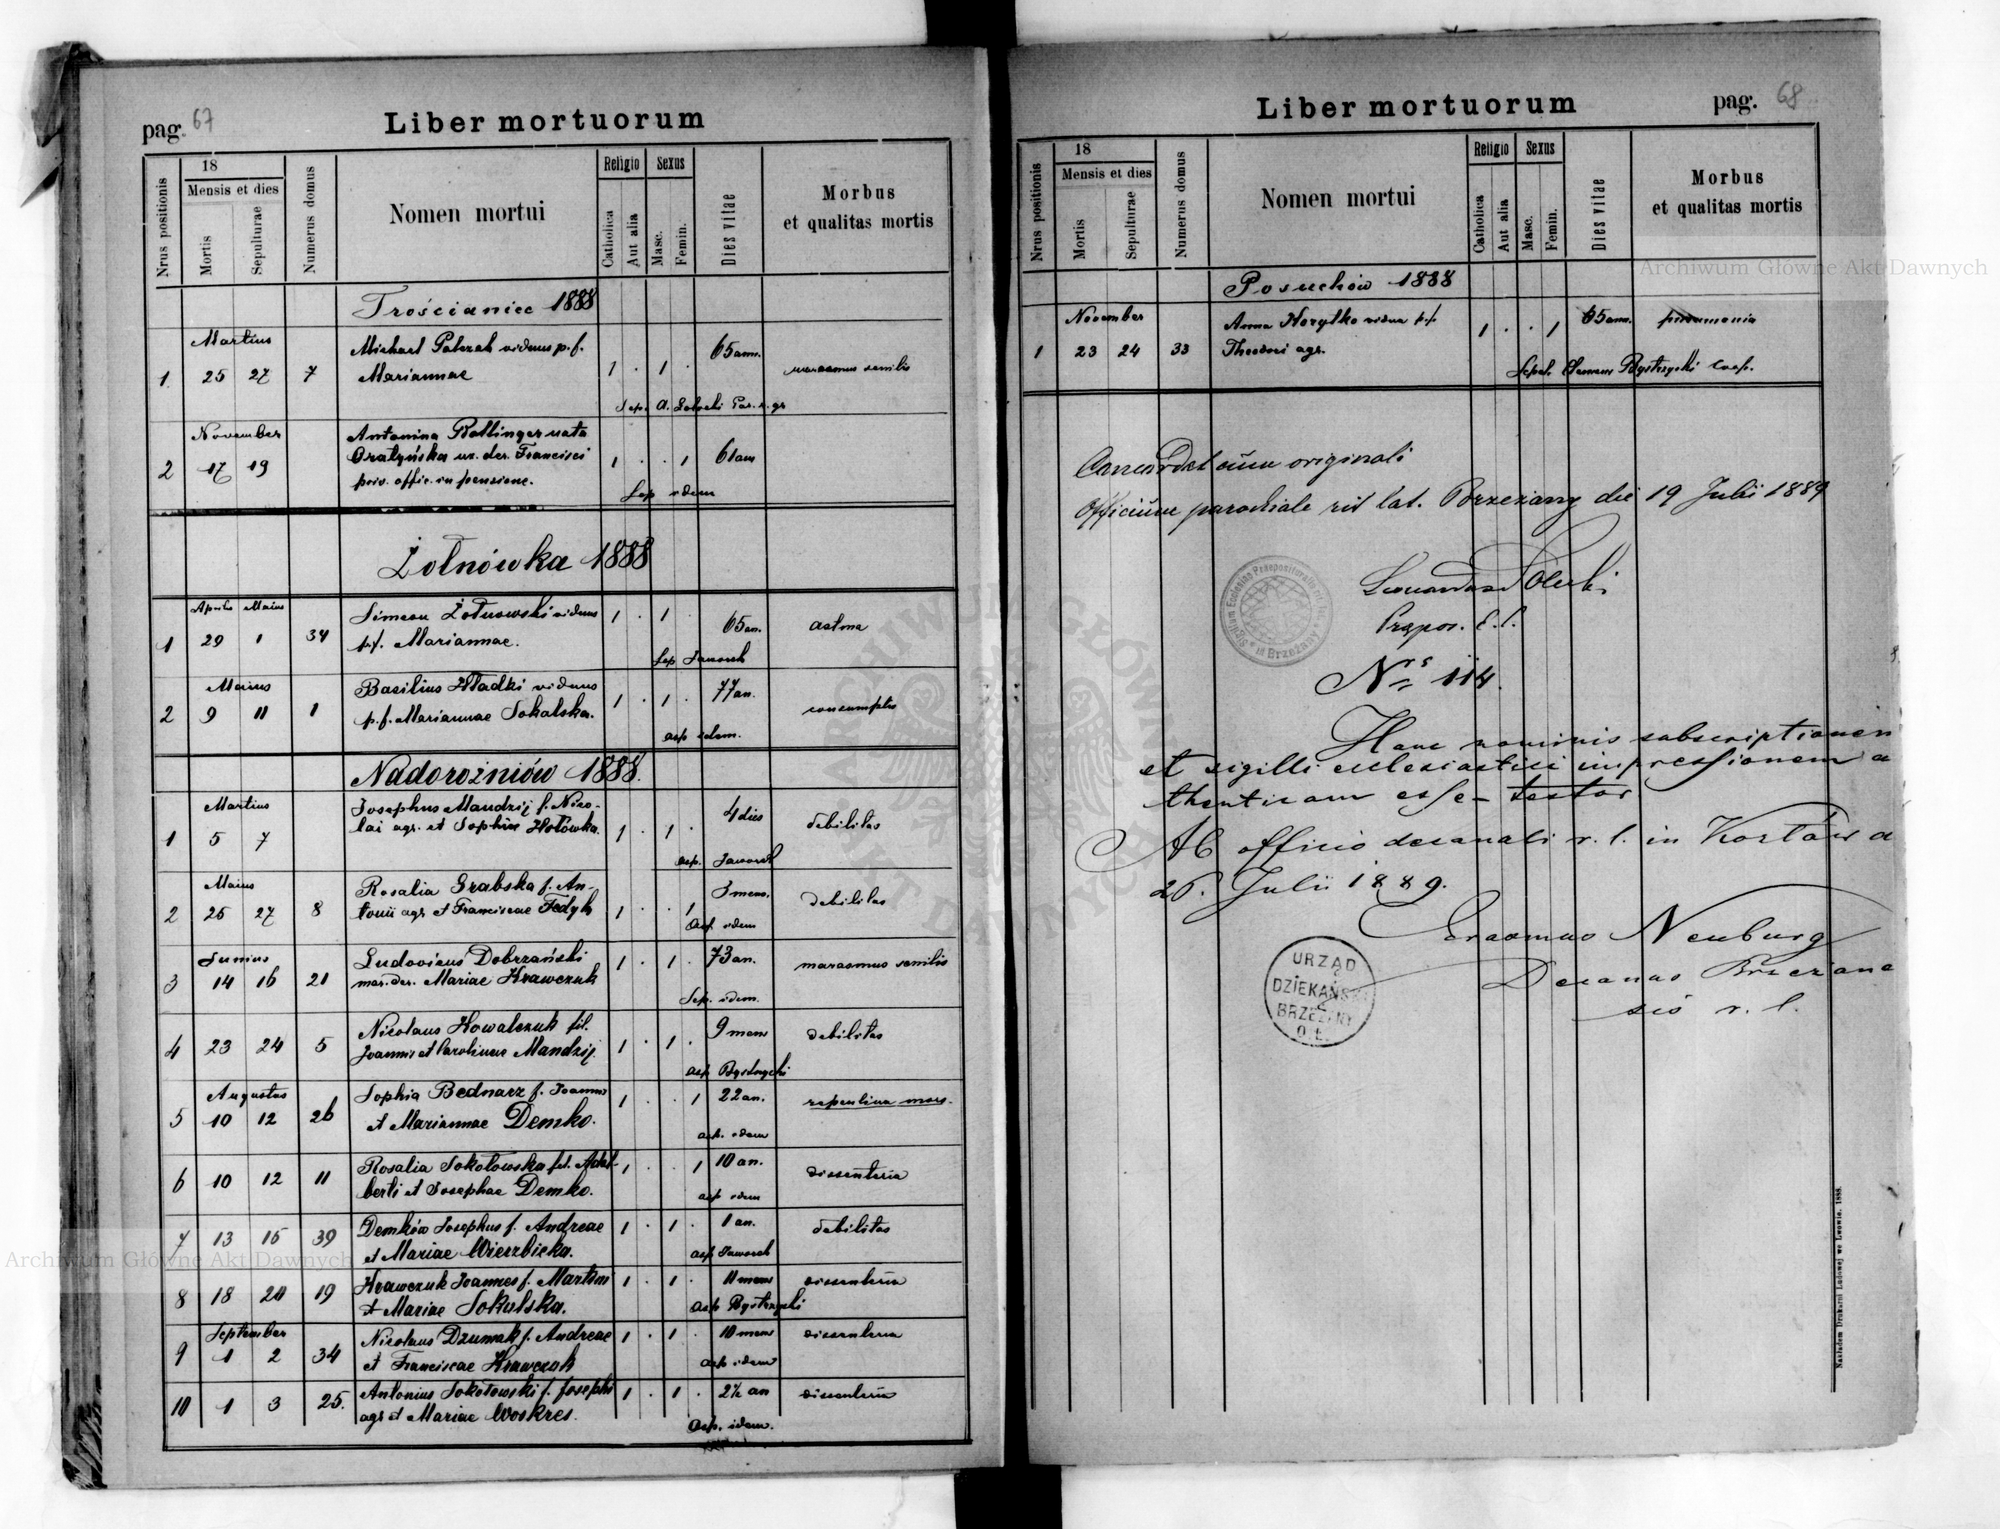 pag. 67
Liber mortuorum
Nrus positionis
18
Mensis et dies
Mortis
Sepulturae
Numerus domus
Nomen mortui
Religio
Catholica
Aut alia
Sexus
Masc.
Femin.
Dies vitae
Morbus
et qualitas mortis
Trościaniec 1888
Martius
Michael Palczak viduus p. f.
65 ann.
1 25 27 7 Mariannae 1 . 1 . marasmus senilis
November
Antonina Bollinger nata
2 17 19 ux. der. Francisci 1 . . 1 61 ann
priv. offic. in pensione.
Sep. idem
Żołnówka 1888
Aprilis Maius
Simeon Żołnowski viduus 1 . 1
1 29 1 34 p. f. Mariannae. 65 an. astma
Sep Jaworek
Maius
Basilius Hładki viduus 77 an.
2 9 11 1 p. f. Mariannae Sokalska. 1 . 1 . consumptio
asp idem.
Nadorożniów 1888.
Martius
Josephus Mandzij f. Nico-
4 dies
1 5 7 lai agr. et Sophiae Hołówka. 1 . 1 . debilitas
asp. Jaworek
Maius
Rosalia Grabska f. An-
3 mens.
2 25 27 8 tonii agr. et Franciscae Fedyk 1 . . 1 debilitas
asp. idem
Junius
Ludovicus Dobrzański
3 14 16 21 mar. der. Mariae Krawczuk 1 . 1 73 an. marasmus senilis
Sep. idem.
Nicolaus Kowalczuk fil.
9 mens
4 23 24 5 Joannis et Carolinae Mandzij. 1 . 1 . debilitas
asp Bystrzycki
Augustus
Sophia Bednarz f. Joannis
5 10 12 26 et Mariannae Demko. 1 . . 1 22 an. repentina mors.
asp. idem
Rosalia Sokołowska fil. Adal-
6 10 12 11 berti et Josephae Demko. 1 . . 1 10 an. dissenteria
asp idem
Demków Josephus f. Andreae 1 . 1 . 1 an. debilitas
7 13 15 39 et Mariae Wierzbicka.
asp Jaworek
Krawczuk Joannes f. Martini 1 . 1 . 11 mens dissenteria
8 18 20 19 et Mariae Sokalska.
asp Bystrzycki
September
Nicolaus Dzumak f. Andreae 1 . 1 . 10 mens dissenteria
9 1 2 34 et Franciscae Krawczuk
asp idem
Antonius Sokołowski f. Josephi 1 . 1 . 2½ an dissenteria
10 1 3 25. agr et Mariae Woskres.
asp. idem.
Liber mortuorum
pag. 68
Nrus positionis
18
Mensis et dies
Mortis
Sepulturae
Numerus domus
Nomen mortui
Religio
Catholica
Aut alia
Sexus
Masc.
Femin.
Dies vitae
Morbus
et qualitas mortis
Posuchów 1888
November
Anna Horytko vidua p. f. 65 ann. pneumonia
1 23 24 33 Theodori agr. 1 . . 1
Sepel. Clemens Bystrzycki coop.
Concordat cum originali
Officium parochiale rit lat. Brzeżany die 19 Julii 1889
Sigillum Ecclesiae Praepositoralis
w Brzeżany
Praepos. r. l.
Nrs 114.
Hanc nominis subscriptionem
et sigilli ecclesiastici impressionem a
thenticam esse testor
Ab officio decanali r. l. in Kozłów d
26. Julii 1889.
Erasmus Neuburg
Decanus Brzeżane
sis r. l.
URZĄD
DZIEKAŃSKI
BRZEŻANY
O. Ł.
Nakładem Drukarni Ludowej we Lwowie. 1888.
Archiwum Główne Akt Dawnych
Archiwum Główne Akt Dawnych
ARCHIWUM GŁÓWNE AKT DAWNYCH